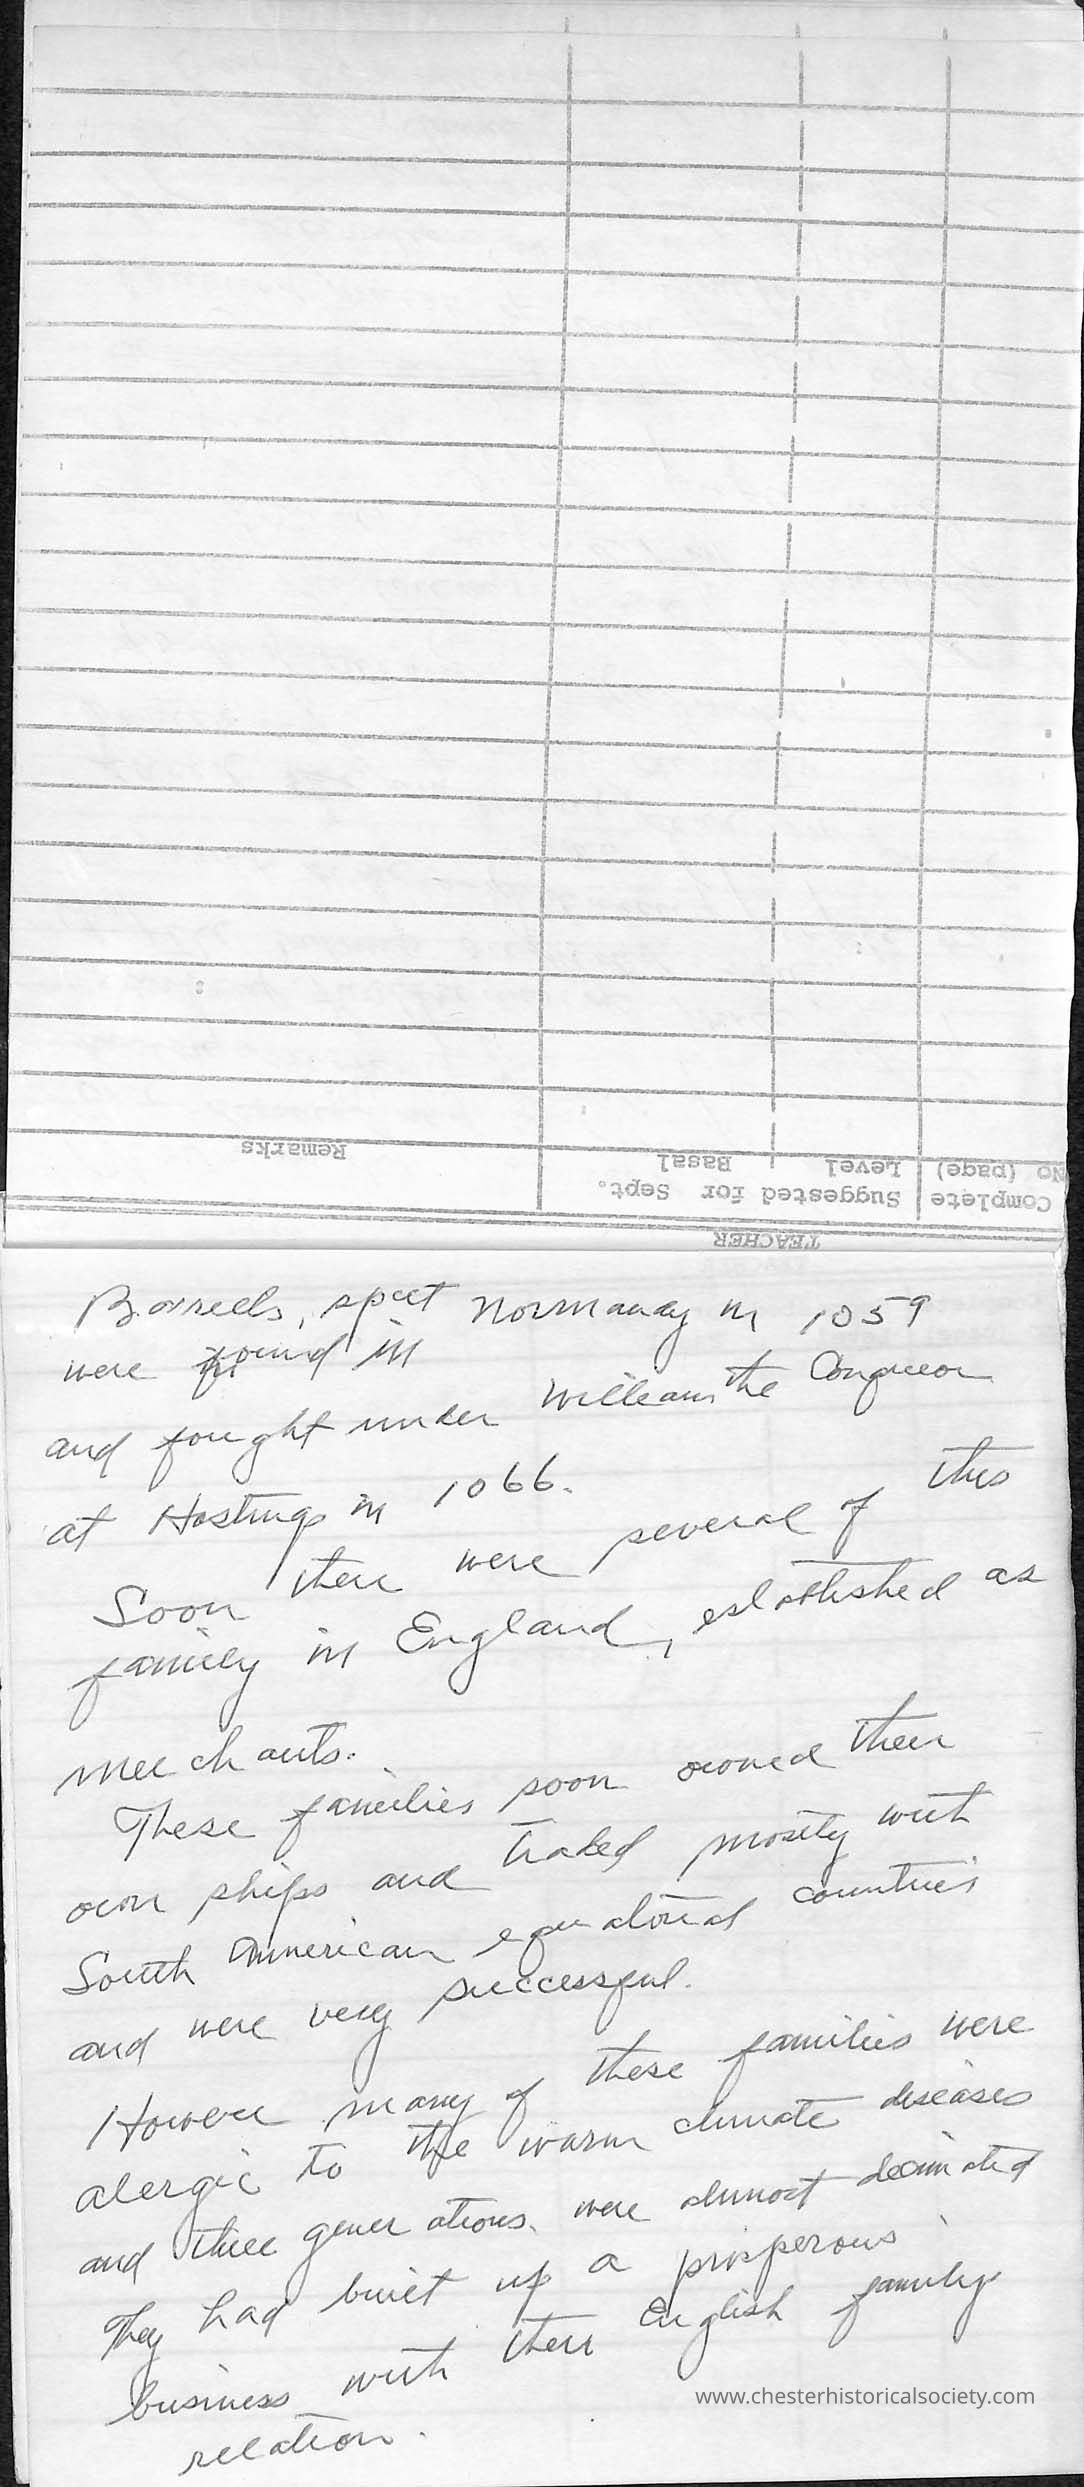 Remarks
Basal
Level
No (page)
Suggested for Sept.
Complete
TEACHER
Borrells, spelt Normandy in 1059
were found in
and fought under William the Conqueor
at Hastings in 1066.
Soon there were several of this
family in England, established as
merchants.
These families soon owned their
own ships and traded mostly with
South American equatorial countries
and were very successful.
However many of these families were
alergic to the warm climate diseases
and three generations were almost decimated
They had built up a prosperous
business with their English family
relation.
www.chesterhistoricalsociety.com